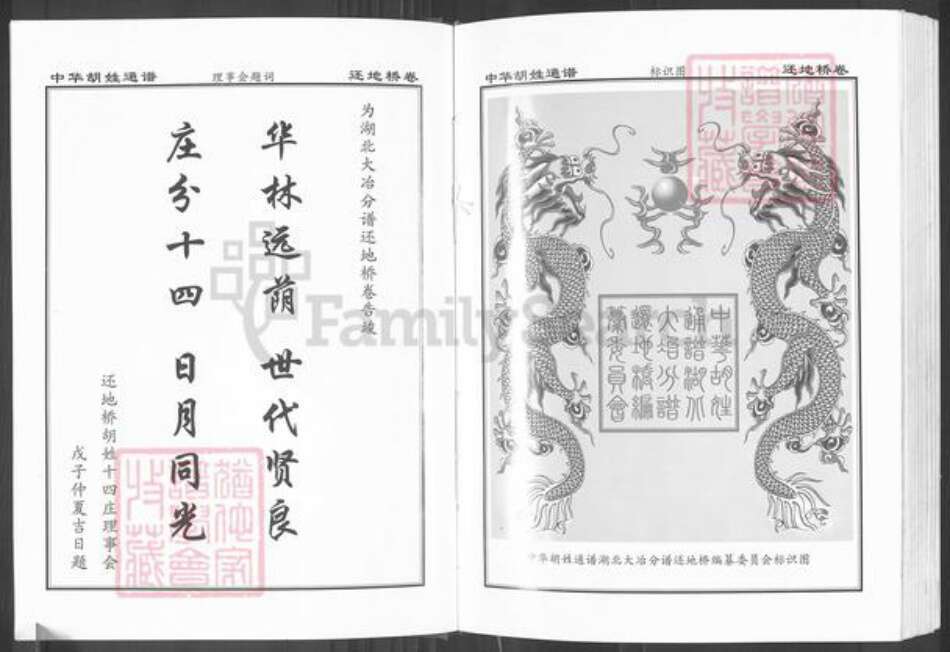 中华胡姓通谱
理事会题词
还地桥卷
为湖北大冶分谱还地桥卷告竣
华林远荫 世代贤良
庄分十四 日月同光
还地桥胡姓十四庄理事会
戊子仲夏吉日题
中华胡姓通谱
标识图
还地桥卷
中華胡姓
通譜湖北
大冶分譜
還地橋編
纂委員會
中华胡姓通谱湖北大冶分谱还地桥编纂委员会标识图
FamilySearch
猶他家
譜學會
收藏